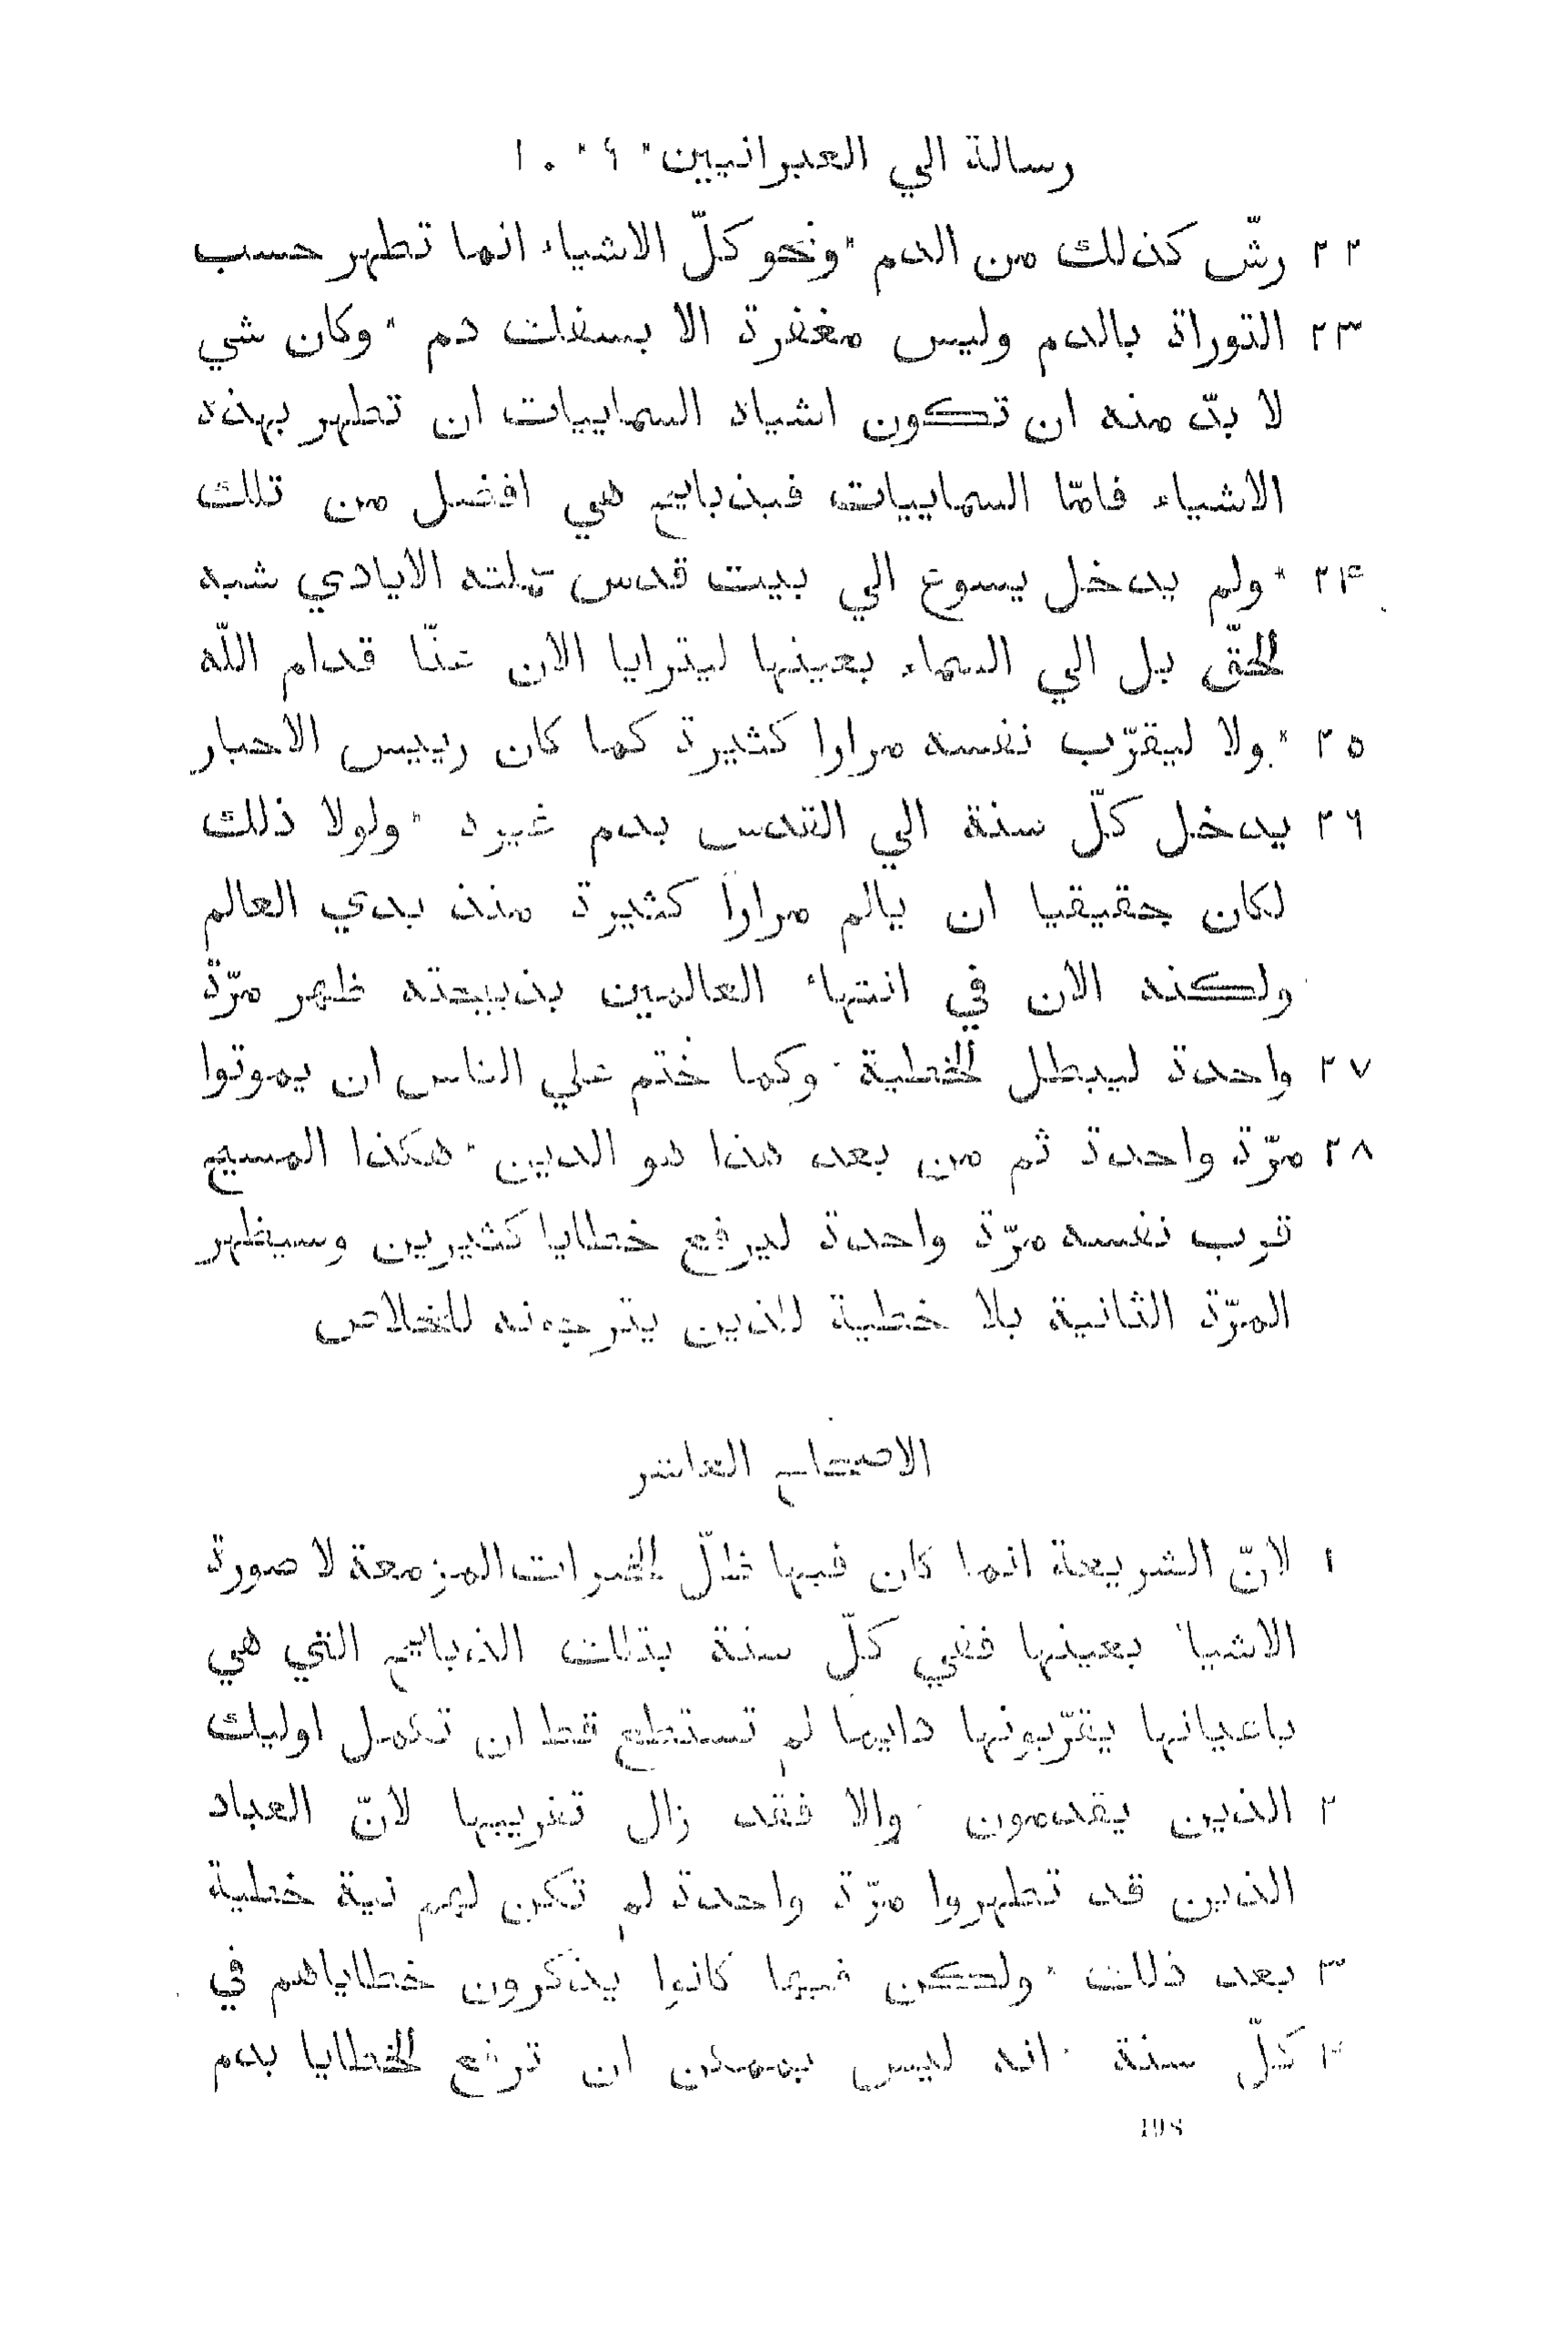 رسالة الي العبرانيين * ٩ * ١٠
٢٢ رشّ كذلك من الدم * ونحو كلّ الاشياء انما تطهر حسب
٢٣ التوراة بالدم وليس مغفرة الا بسفك دم * وكان شي
لا بدّ منه ان تكون اشياه السماييات ان تطهر بهذه
الاشياء فامّا السماييات فبذبايح هي افضل من تلك
٢٤ * ولم يدخل يسوع الي بيت قدس عملته الايادي شبه
الحقّ بل الي السماء بعينها ليترايا الان عنّا قدام اللّه
٢٥ * ولا ليقرّب نفسه مرارا كثيرة كما كان رييس الاحبار
٢٦ يدخل كلّ سنة الي القدس بدم غيره * ولولا ذلك
لكان حقيقيا ان يالم مرارا كثيرة منذ بدي العالم
ولكنه الان في انتهاء العالمين بذبيحته ظهر مرّة
٢٧ واحدة ليبطل الخطية * وكما ختم علي الناس ان يموتوا
٢٨ مرّة واحدة ثم من بعد هذا هو الدين * هكذا المسيح
قرب نفسه مرّة واحدة ليرفع خطايا كثيرين وسيظهر
المرّة الثانية بلا خطية للذين يترجونه للخلاص
الاصحاح العاشر
١ لانّ الشريعة انما كان فيها ظلّ الخيرات المزمعة لا صورة
الاشياء بعينها ففي كلّ سنة بتلك الذبايح التي هي
باعيانها يقرّبونها دايما لم تستطع قط ان تكمل اوليك
٢ الذين يقدمون * والا فقد زال تقريبها لانّ العباد
الذين قد تطهروا مرّة واحدة لم تكن لهم نية خطية
٣ بعد ذلك * ولكن فيها كانوا يذكرون خطاياهم في
٤ كلّ سنة * انه ليس بممكن ان ترفع الخطايا بدم
198